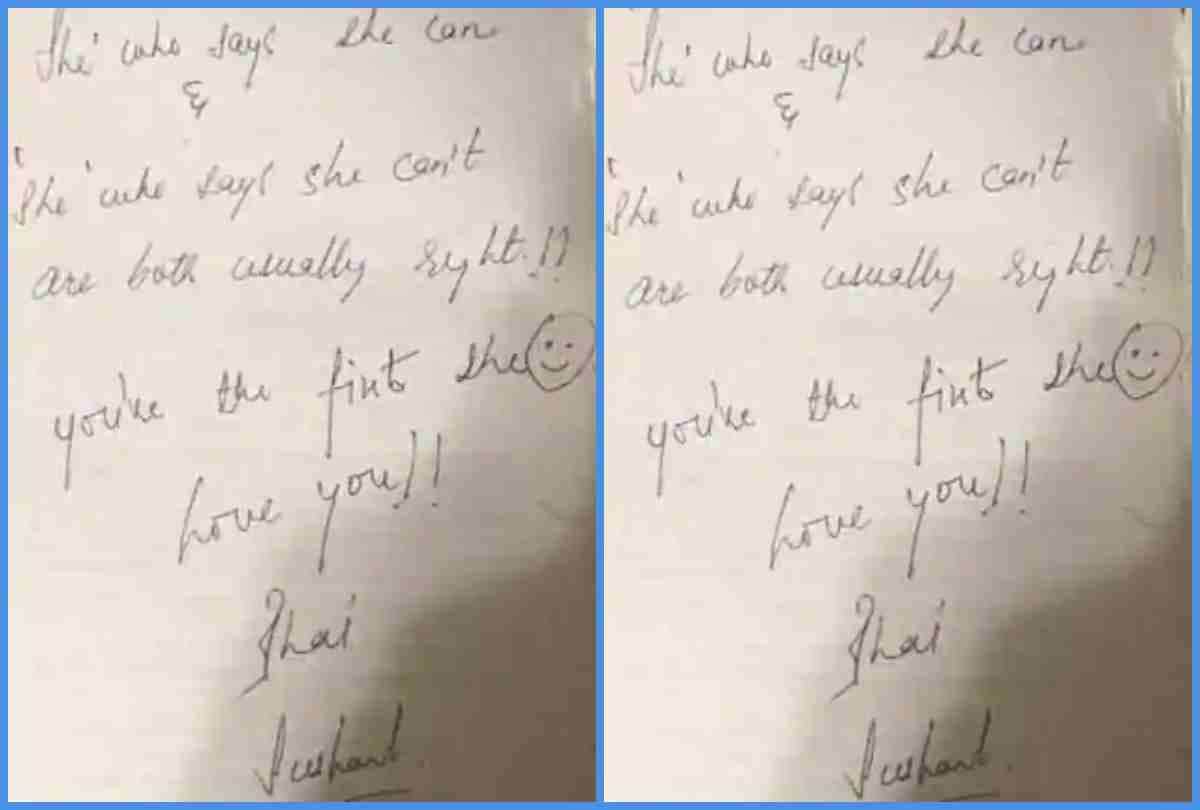 She' who says she can
&
'She' who says she can't
are both usually right.!!
you're the first she
Love you!!
Bhai
Sushant.
She' who says she can
&
'She' who says she can't
are both usually right.!!
you're the first she
Love you!!
Bhai
Sushant.